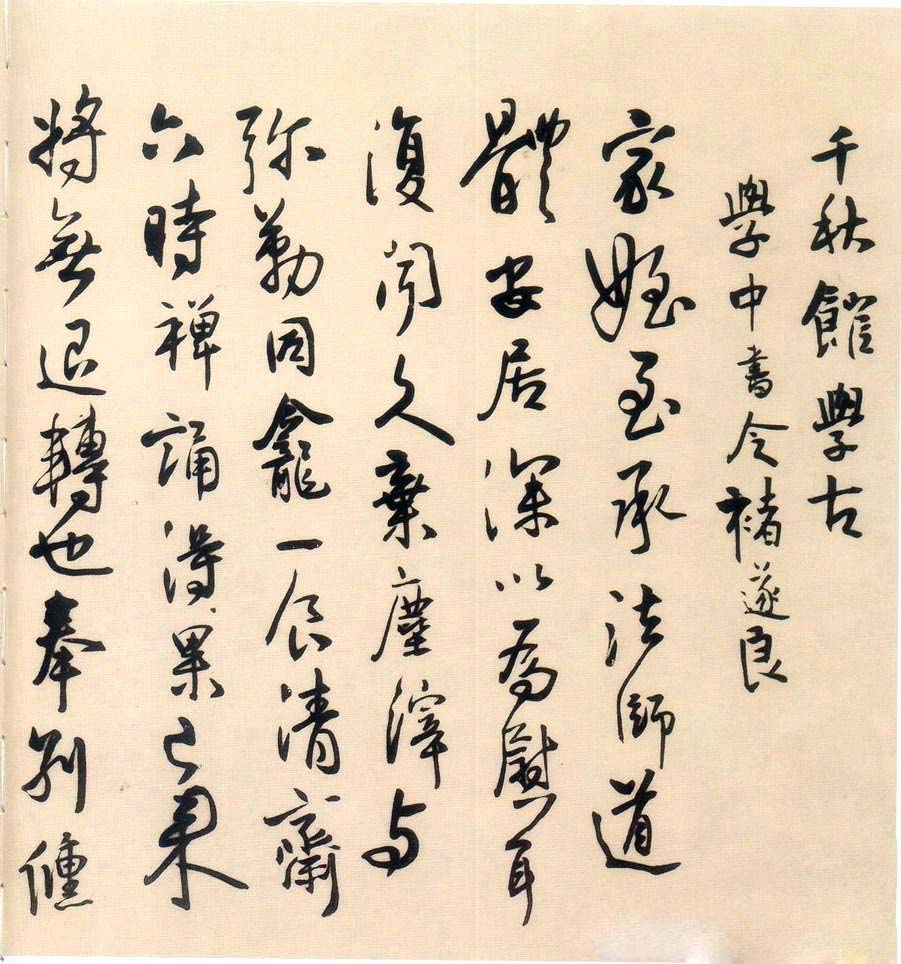 千秋館學古
學中書令褚遂良
家姪至承法師道
體安居深以為慰耳
復聞久棄塵滓與
弥勒同龕一食清齋
六時禅誦得果已來
將無退轉也奉別儵